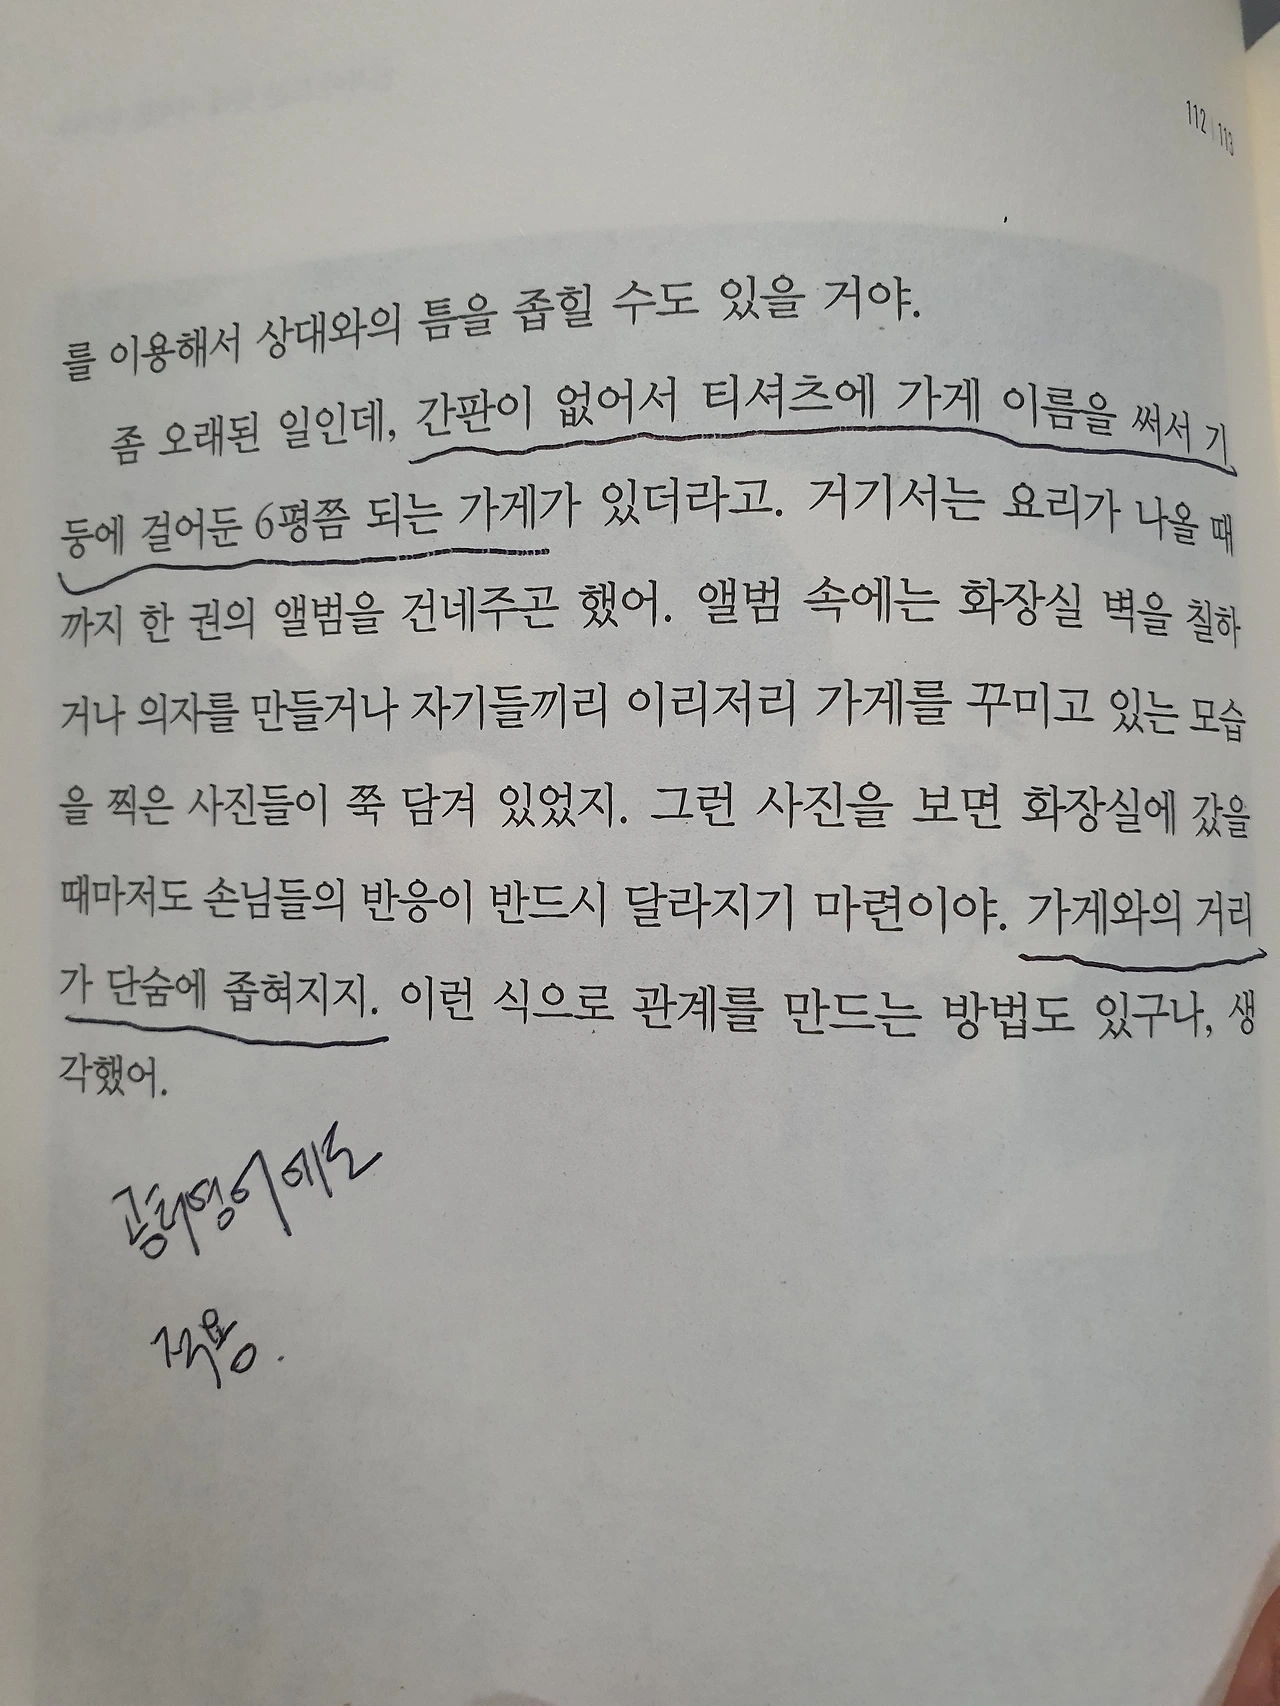 112 | 113
를 이용해서 상대와의 틈을 좁힐 수도 있을 거야.
좀 오래된 일인데, 간판이 없어서 티셔츠에 가게 이름을 써서 기
둥에 걸어둔 6평쯤 되는 가게가 있더라고. 거기서는 요리가 나올 때
까지 한 권의 앨범을 건네주곤 했어. 앨범 속에는 화장실 벽을 칠하
거나 의자를 만들거나 자기들끼리 이리저리 가게를 꾸미고 있는 모습
을 찍은 사진들이 쭉 담겨 있었지. 그런 사진을 보면 화장실에 갔을
때마저도 손님들의 반응이 반드시 달라지기 마련이야. 가게와의 거리
가 단숨에 좁혀지지. 이런 식으로 관계를 만드는 방법도 있구나, 생
각했어.
적용.